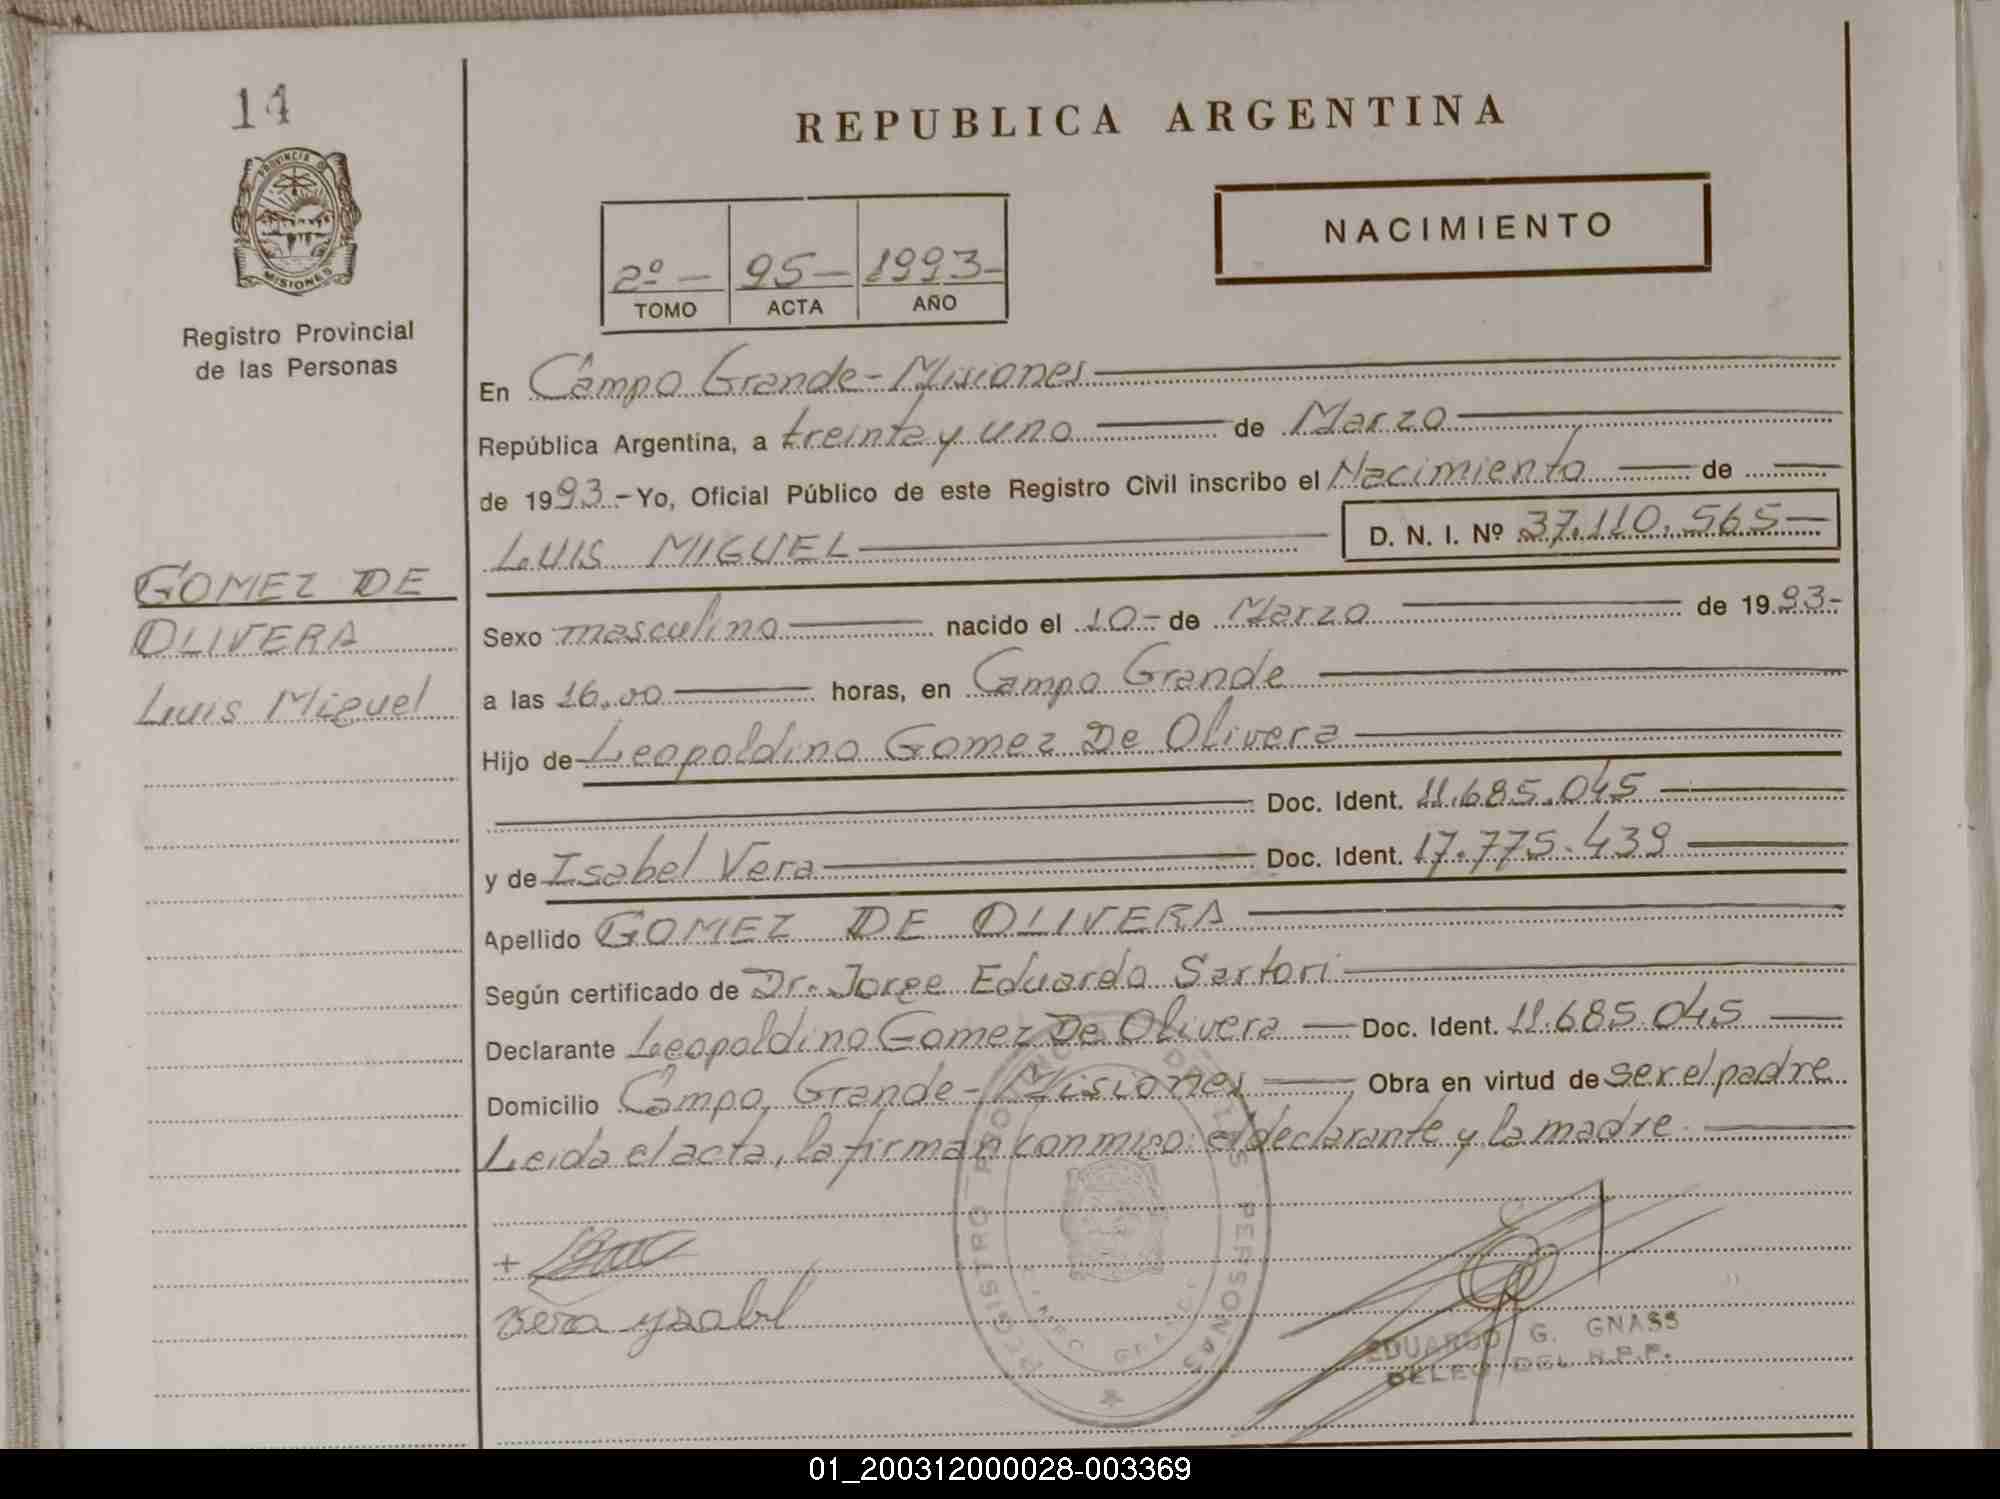 14
PROVINCIA DE
MISIONES
Registro Provincial
de las Personas
GOMEZ DE
OLIVERA
Luis Miguel
REPUBLICA ARGENTINA
NACIMIENTO
2º — 95— 1993-
TOMO ACTA AÑO
En Campo Grande - Misiones
República Argentina, a treinta y uno — de Marzo
de 1993.- Yo, Oficial Público de este Registro Civil inscribo el Nacimiento — de —
LUIS MIGUEL — D. N. I. Nº 37.110.565—
Sexo masculino — nacido el 10- de Marzo — de 1993-
a las 16.00 — horas, en Campo Grande
Hijo de Leopoldino Gomez De Olivera
Doc. Ident. 11.685.045
y de Isabel Vera — Doc. Ident. 17.775.439
Apellido GOMEZ DE OLIVERA
Según certificado de Dr. Jorge Eduardo Sartori
Declarante Leopoldino Gomez De Olivera — Doc. Ident. 11.685.045
Domicilio Campo Grande - Misiones — Obra en virtud de ser el padre
Leida el acta, la firman conmigo: el declarante y la madre.
REGISTRO PROVINCIAL DE LAS PERSONAS
vera ysabel
EDUARDO G. GNASS
DELEG. DEL R.P.P.
01_200312000028-003369